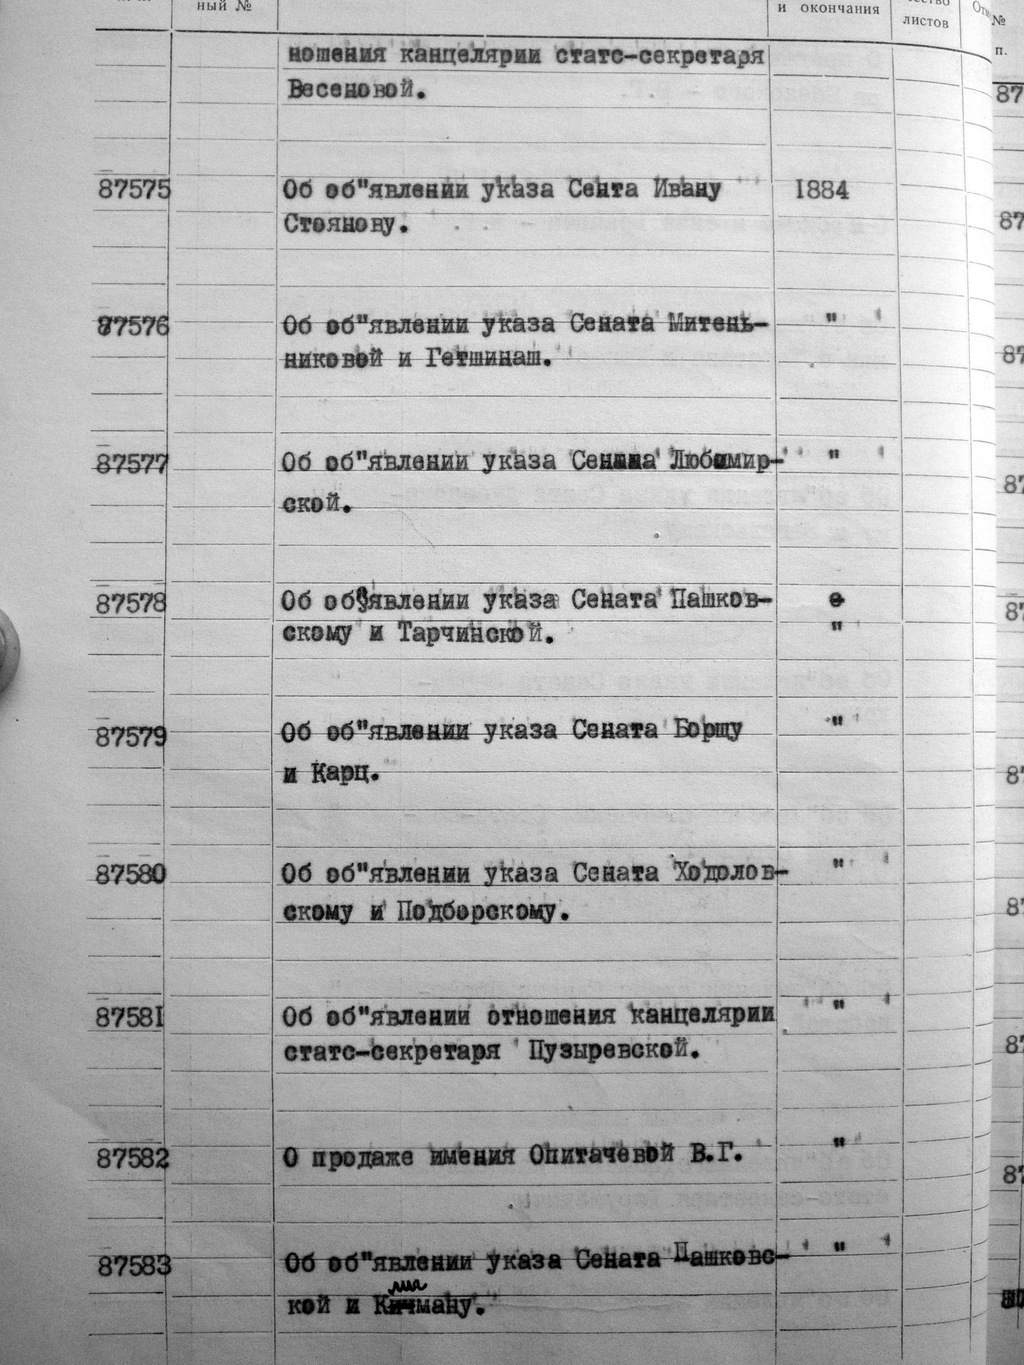 ный №
и окончания
листов
№
п.
ношения канцелярии статс-секретаря
Весеновой.
87
87575 Об об"явлении указа Сента Ивану 1884
Стоянову.
87
87576 Об об"явлении указа Сената Митень- "
никовой и Гетшинаш.
87
87577 Об об"явлении указа Сената Любомир- "
ской.
87
87578 Об об"явлении указа Сената Пашков-
скому и Тарчинской. "
87
87579 Об об"явлении указа Сената Борщу "
и Карц.
87
87580 Об об"явлении указа Сената Ходолов- "
скому и Подборскому.
87
87581 Об об"явлении отношения канцелярии "
статс-секретаря Пузыревской.
87
87582 О продаже имения Опитачевой В.Г. "
87
87583 Об об"явлении указа Сената Пашковс- "
кой и Кичману.